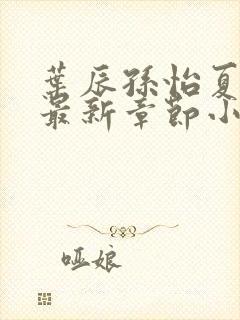 葉辰孫怡夏
最新章節小
哑娘